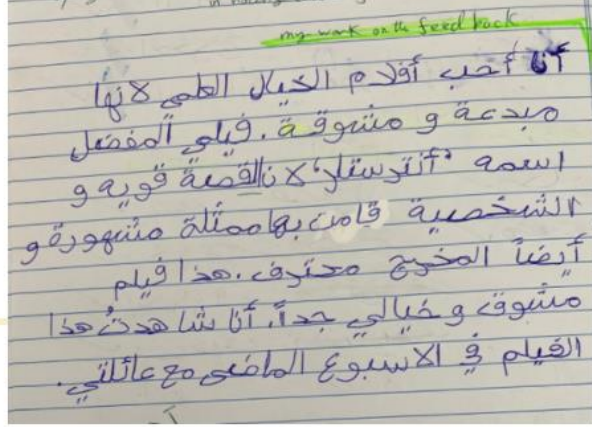 my work on the feed back
أنا أحب أفلام الخيال العلمي لانها
مبدعة و مشوقة. فيلمي المفضل
اسمه "أنترستلر" لان القصة قوية و
الشخصية قامت بها ممثلة مشهورة و
أيضاً المخرج محترف. هذا فيلم
مشوق و خيالي جداً. أنا شاهدتُ هذا
الفيلم في الاسبوع الماضي مع عائلتي.